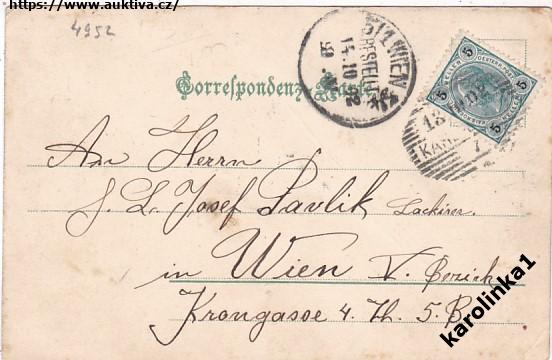 https://www.auktiva.cz/
4952
Correspondenz-Karte
51/1 WIEN
BESTELLT
14.10.02
5 5
5 5
13
KAR
An Herrn
S. L. Josef Pavlik Lackirer
in Wien V. Bezirk
Krongasse 4. Th. 5. B
karolinka1